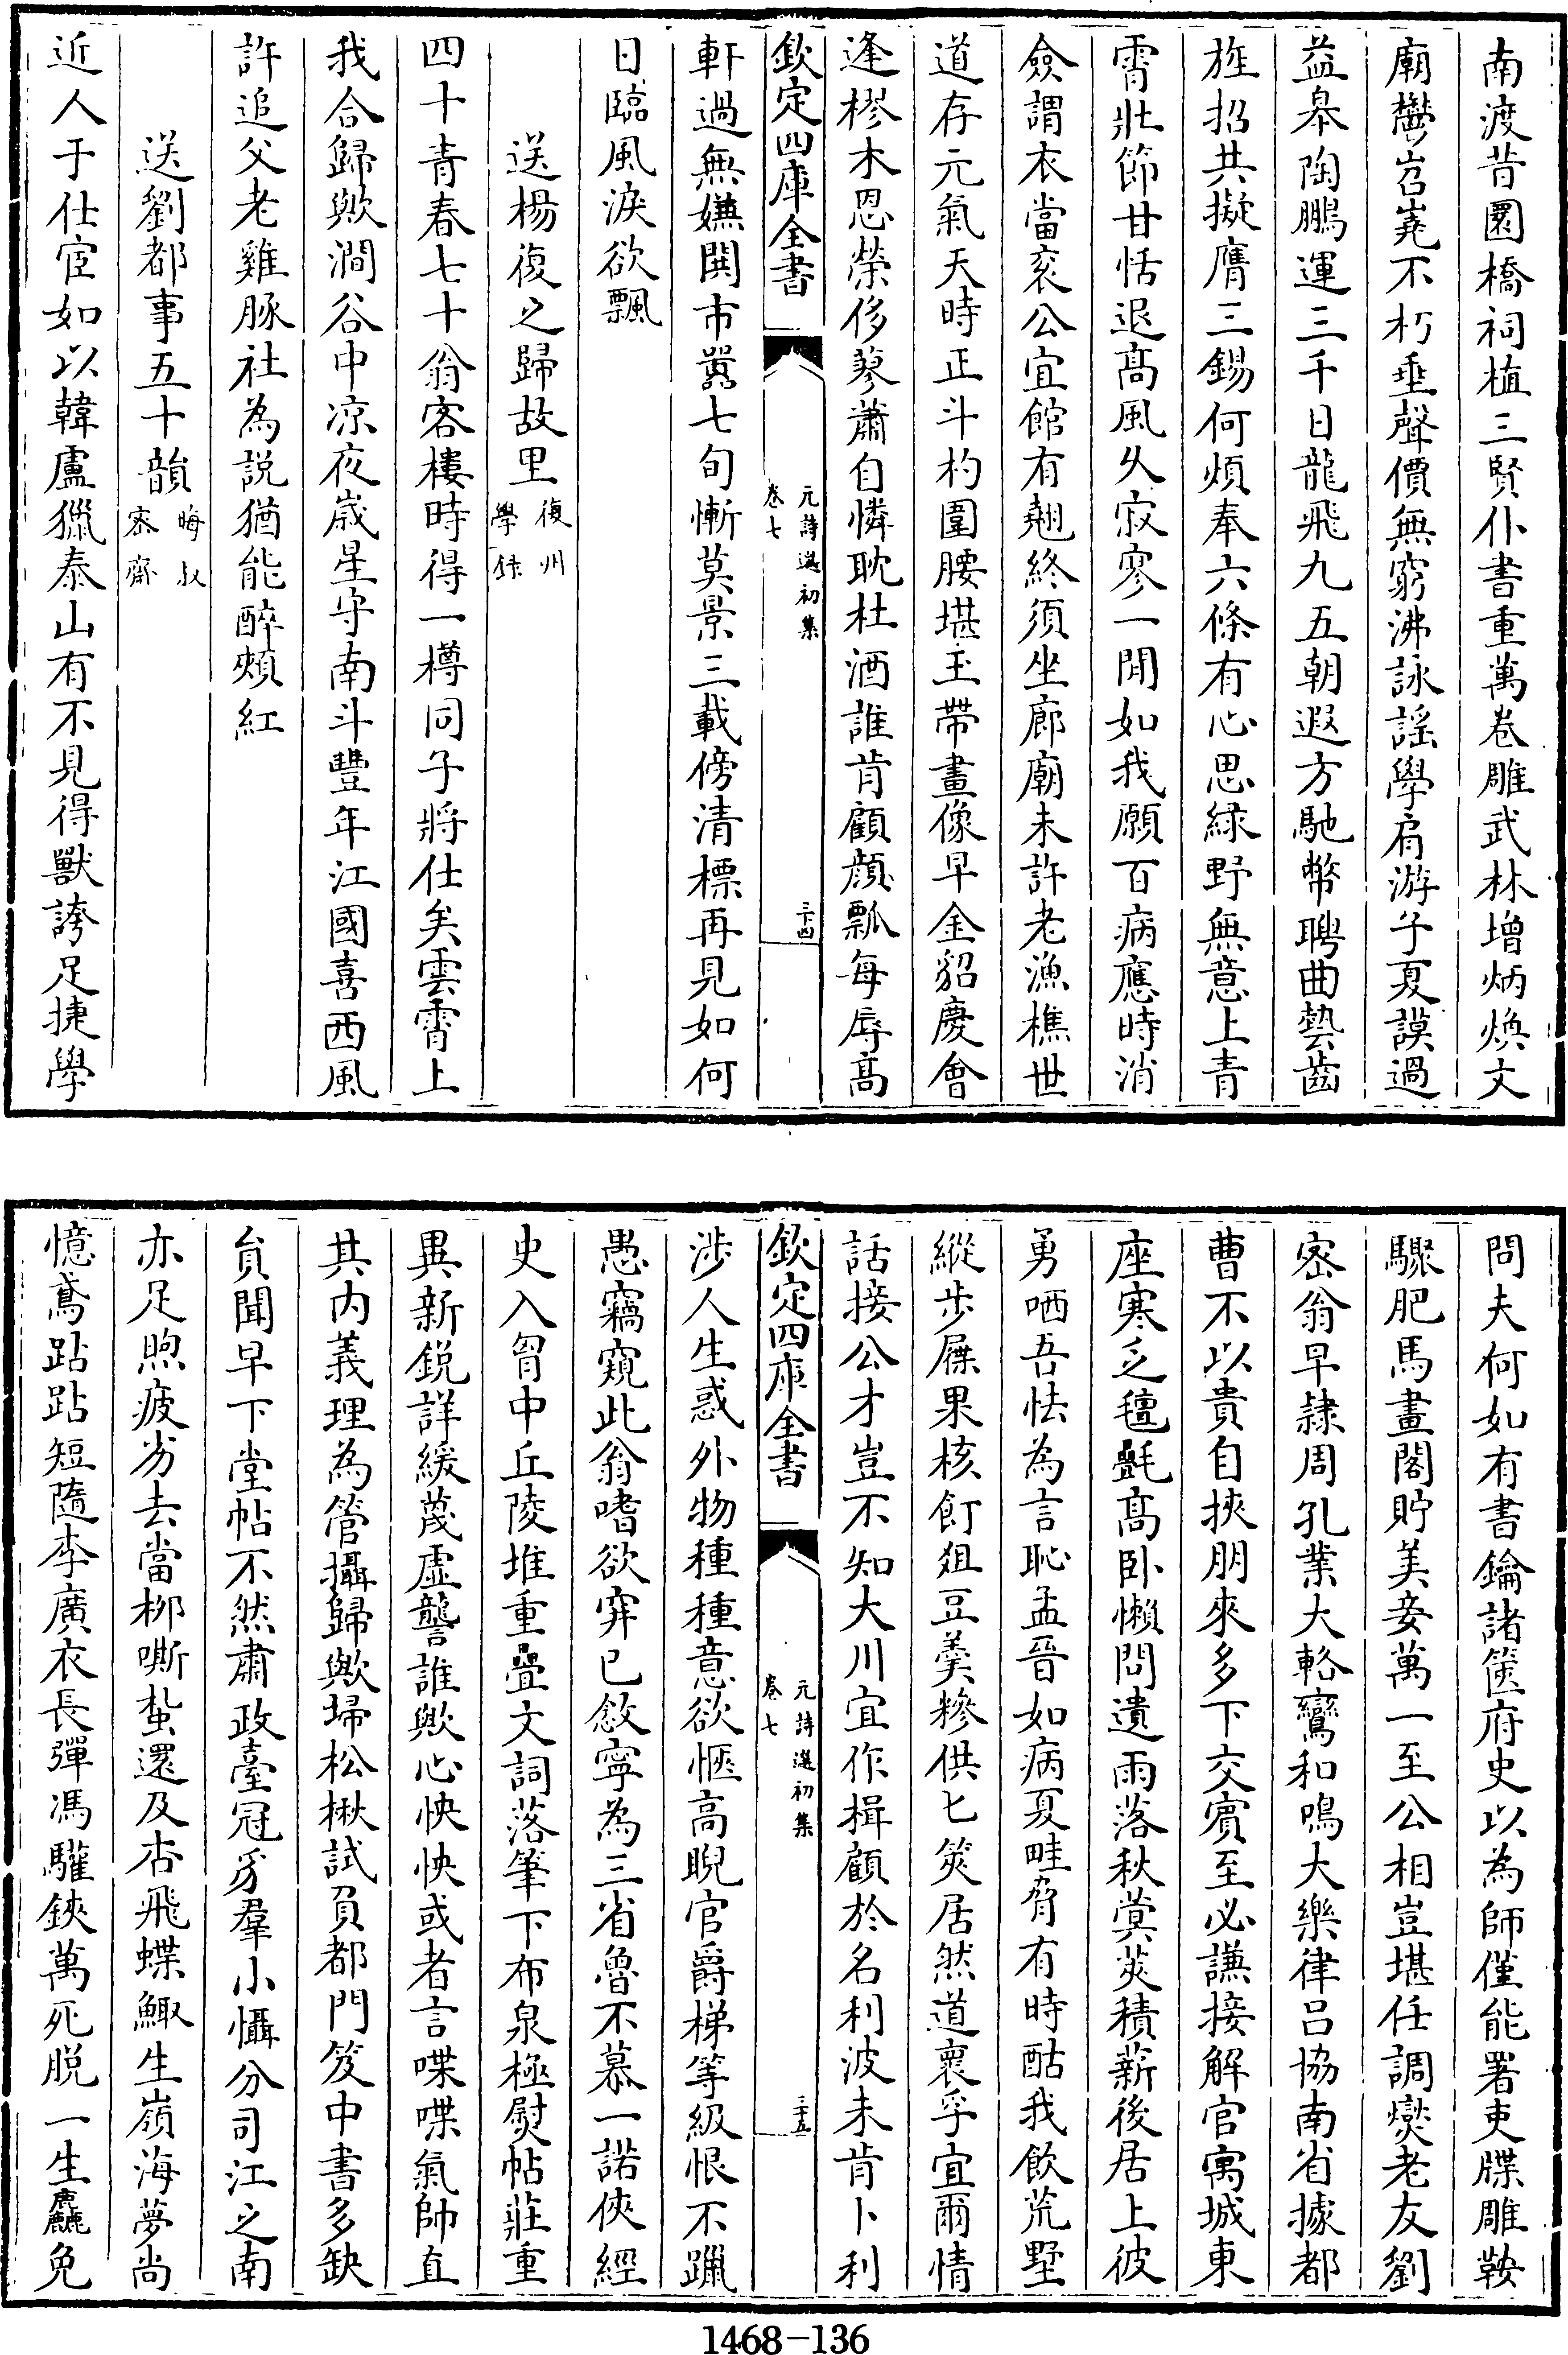 南渡昔園橋祠植三賢仆書重萬卷雕武林增炳煥文
廟鬱岧嶤不朽垂聲價無窮沸詠謡學肩游子夏謨過
益皋陶鵬運三千日龍飛九五朝遐方馳幣聘曲藝齒
旌招共擬膺三錫何煩奉六條有心思緑野無意上青
霄壯節甘恬退髙風久寂寥一閒如我願百病應時消
僉謂衣當衮公宜館有翹終須坐廊廟未許老漁樵世
道存元氣天時正斗杓圍腰堪玉帶畫像早金貂慶會
逢樛木恩榮侈蓼蕭自憐耽杜酒誰肯顧顔瓢每辱髙
欽定四庫全書
元詩選初集
卷七
三十四
軒過無嫌闤市囂七旬慚莫景三載傍清標再見如何
日臨風淚欲飄
送楊復之歸故里復州學録
四十青春七十翁客樓時得一樽同子將仕矣雲霄上
我合歸歟澗谷中凉夜歳星守南斗豐年江國喜西風
許追父老雞豚社為說猶能醉頰紅
送劉都事五十韻晦叔宻齋
近人于仕宦如以韓盧獵泰山有不見得獸誇足捷學
問夫何如有書鑰諸篋府史以為師僅能署吏牒雕鞍
驟肥馬畫閣貯美妾萬一至公相豈堪任調燮老友劉
宻翁早隷周孔業大輅鸞和鳴大樂律吕協南省據都
曹不以貴自挾朋來多下交賔至必謙接解官寓城東
座寒乏氊㲲髙卧懶問遺雨落秋蓂莢積薪後居上彼
勇哂吾怯為言恥孟晉如病夏畦脅有時酤我飲荒墅
縱步屧果核飣俎豆羹糝供匕筴居然道裏孚宜爾情
話接公才豈不知大川宜作楫顧於名利波未肯卜利
欽定四庫全書
元詩選初集
卷七
三十五
涉人生惑外物種種意欲愜高睨官爵梯等級恨不躐
愚竊窺此翁嗜欲穽已㪘寜為三省魯不慕一諾俠經
史入胷中丘陵堆重疊文詞落筆下布泉極熨帖莊重
異新鋭詳緩蔑虚讋誰歟心怏怏或者言喋喋氣帥直
其内義理為管攝歸歟埽松楸試負都門笈中書多缺
貟聞早下堂帖不然肅政臺冠豸羣小懾分司江之南
亦足煦疲劣去當柳嘶蜇還及杏飛蝶鯫生嶺海夢尚
憶鳶跕跕短隨李廣衣長彈馮驩鋏萬死脱一生麤免
1468-136